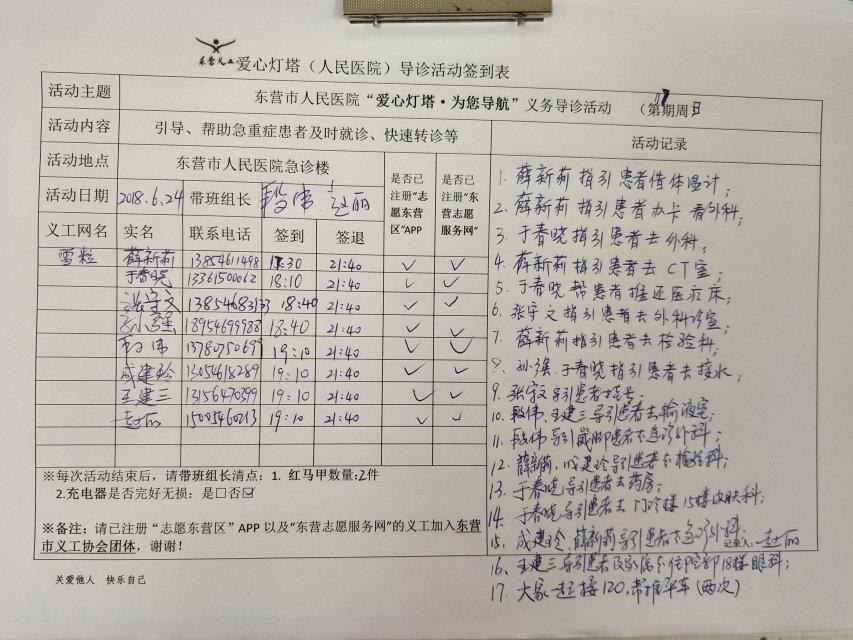 东营义工 爱心灯塔（人民医院）导诊活动签到表
活动主题 东营市人民医院“爱心灯塔·为您导航”义务导诊活动 （第期周日
活动内容 引导、帮助急重症患者及时就诊、快速转诊等 活动记录
活动地点 东营市人民医院急诊楼 是否已注册“志愿东营区”APP 是否已注册“东营志愿服务网”
活动日期 2018.6.24 带班组长 段伟 赵丽
义工网名 实名 联系电话 签到 签退
雪粒 薛新莉 13854611498 17:30 21:40 ✓ ✓
于春晓 13361500062 18:10 21:40 ✓ ✓
张守文 13854683133 18:40 21:40 ✓ ✓
孙强 18954699988 18:40 21:40 ✓ ✓
段伟 1378075069 19:10 21:40 ✓ ✓
成建玲 13054618289 19:10 21:40 ✓ ✓
王建三 13156470399 19:10 21:40 ✓ ✓
赵丽 15005460213 19:10 21:40 ✓ ✓
※每次活动结束后，请带班组长清点：1. 红马甲数量:2件
2.充电器是否完好无损：是□否☑
※备注：请已注册“志愿东营区”APP 以及“东营志愿服务网”的义工加入东营
市义工协会团体，谢谢！
关爱他人 快乐自己
1. 薛新莉指引患者借体温计；
2. 薛新莉指引患者办卡看外科；
3. 于春晓指引患者去外科；
4. 薛新莉指引患者去CT室；
5. 于春晓帮患者推还医疗床；
6. 张守文指引患者去外科诊室；
7. 薛新莉指引患者去检验科；
8. 孙强、于春晓指引患者去接水；
9. 张守文导引患者挂号；
10. 段伟 王建三导引患者去输液室；
11. 段伟导引崴脚患者去急诊外科；
12. 薛新莉、成建玲导引患者去检验科；
13. 于春晓导引患者去药房；
14. 于春晓导引患者去门诊楼15楼皮肤科；
15. 成建玲、薛新莉导引患者去急诊外科
记录人：赵丽
16. 王建三导引患者及家属去住院部18楼眼科；
17. 大家一起接120，帮推平车(两次)